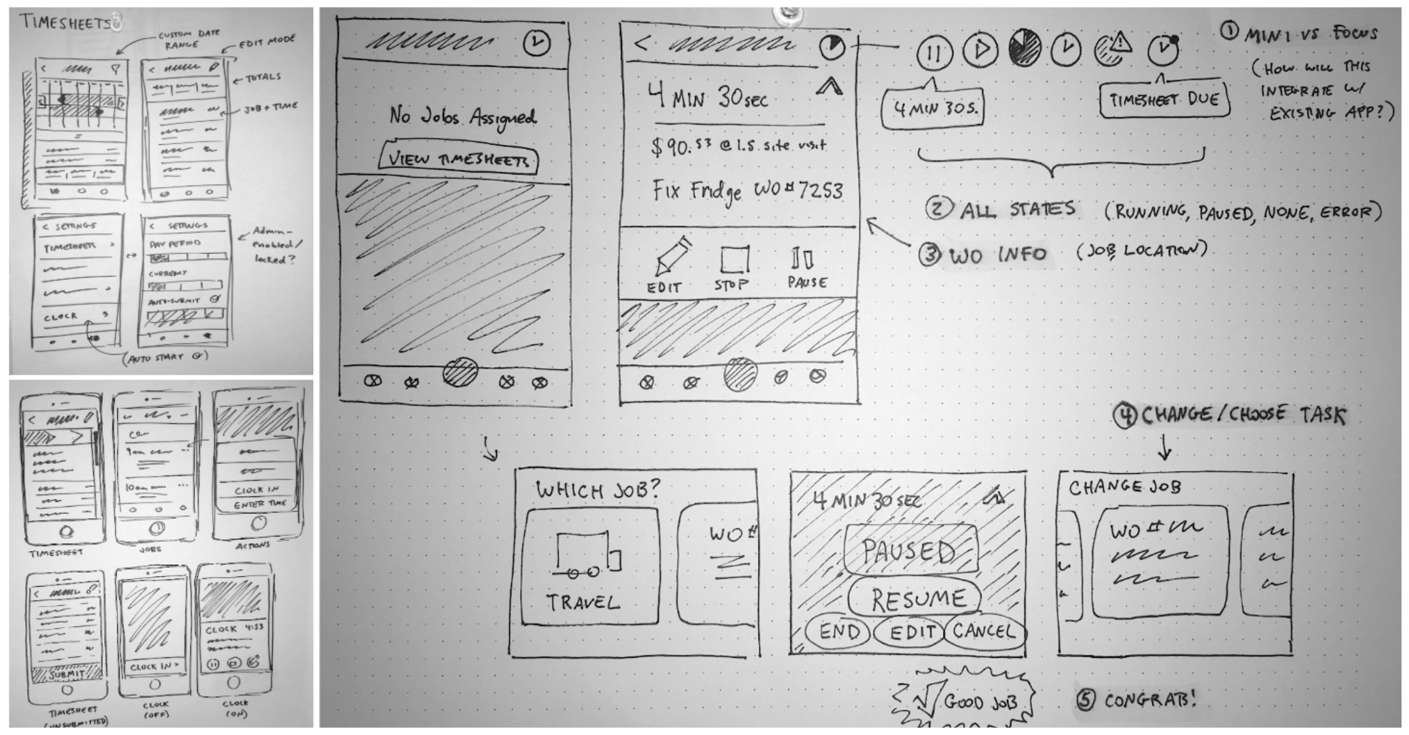 TIMESHEETS
CUSTOM DATE
RANGE
EDIT MODE
TOTALS
JOB + TIME
< SETTINGS
TIMESHEETS >
CLOCK
(AUTO START
< SETTINGS
PAY PERIOD
CURRENCY
AUTO-SUBMIT
Admin-
enabled/
locked?
TIMESHEET
9am
10am
JOBS
CLOCK IN
ENTER TIME
ACTIONS
SUBMIT
TIMESHEET
(UNSUBMITTED)
CLOCK IN >
CLOCK
(OFF)
CLOCK 4:53
CLOCK
(ON)
No Jobs Assigned
VIEW TIMESHEETS
4 MIN 30 sec
$90.53 @ I.S. site visit
Fix Fridge WO# 7253
EDIT STOP PAUSE
4 MIN 30S.
TIMESHEET DUE
① MINI VS FOCUS
(HOW WILL THIS
INTEGRATE W/
EXISTING APP?)
② ALL STATES (RUNNING, PAUSED, NONE, ERROR)
③ WO INFO (JOB LOCATION)
④ CHANGE/CHOOSE TASK
WHICH JOB?
TRAVEL
WO#
4 MIN 30 SEC
PAUSED
RESUME
END EDIT CANCEL
CHANGE JOB
WO #
GOOD JOB
⑤ CONGRATS!